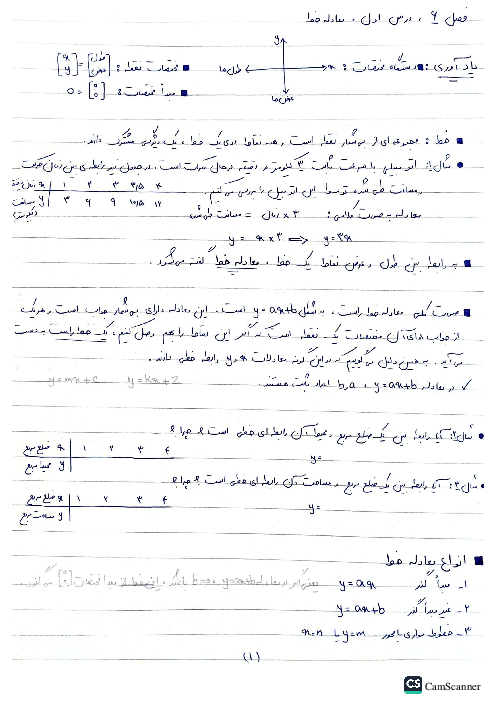 فصل ۶، درس اول، معادله خط
یادآوری: ■ دستگاه مختصات: y x طول‌ها عرض‌ها ■ مختصات نقطه: [x y] = [طول عرض]
■ مبدأ مختصات: [0 0] = O
■ خط: مجموعه‌ای از بی‌شمار نقطه است و همه نقاط روی یک خط، یک ویژگی مشترک دارند.
● مثال ۱: اتومبیلی با سرعت ثابت ۳ کیلومتر در دقیقه در حال حرکت است. در جدول زیر رابطه‌ی بین زمان حرکت
و مسافت طی شده توسط این اتومبیل را بررسی می‌کنیم.
x ۱ ۲ ۳ ۳/۵ ۴
y مسافت ۳ ۶ ۹ ۱۰/۵ ۱۲
معادله به صورت کلامی: ۳ × زمان = مسافت طی شده
y = x × ۳ ⟺ y = ۳x
■ به رابطه بین طول و عرض نقاط یک خط، معادله خط گفته می‌شود.
■ صورت کلی معادله خط راست، به شکل y = ax + b است. این معادله دارای بی‌شمار جواب است و هر یک
از جواب‌های آن مختصات یک نقطه است که اگر این نقاط را بهم وصل کنیم، یک خط راست به دست
می‌آید. به همین دلیل می‌گوییم که در این گونه معادلات x و y رابطه خطی دارند.
✓ در معادله y = ax + b، a و b اعداد ثابت هستند. y = kx + z y = mx + c
● مثال ۲: آیا رابطه بین یک ضلع مربع و محیط آن رابطه‌ای خطی است؟ چرا؟
x ضلع مربع ۱ ۲ ۳ ۴
y محیط مربع
y=
● مثال ۳: آیا رابطه بین یک ضلع مربع و مساحت آن رابطه‌ای خطی است؟ چرا؟
x ضلع مربع ۱ ۲ ۳ ۴
y مساحت مربع
y=
■ انواع معادله خط
۱- مبدأ گذر y = ax یعنی اگر در معادله y = ax + b، b = 0 باشد، این خط از مبدأ مختصات [0 0] می‌گذرد.
۲- غیر مبدأ گذر y = ax + b
۳- خطوط موازی با محور y = m یا x = n
(۱)
CS CamScanner